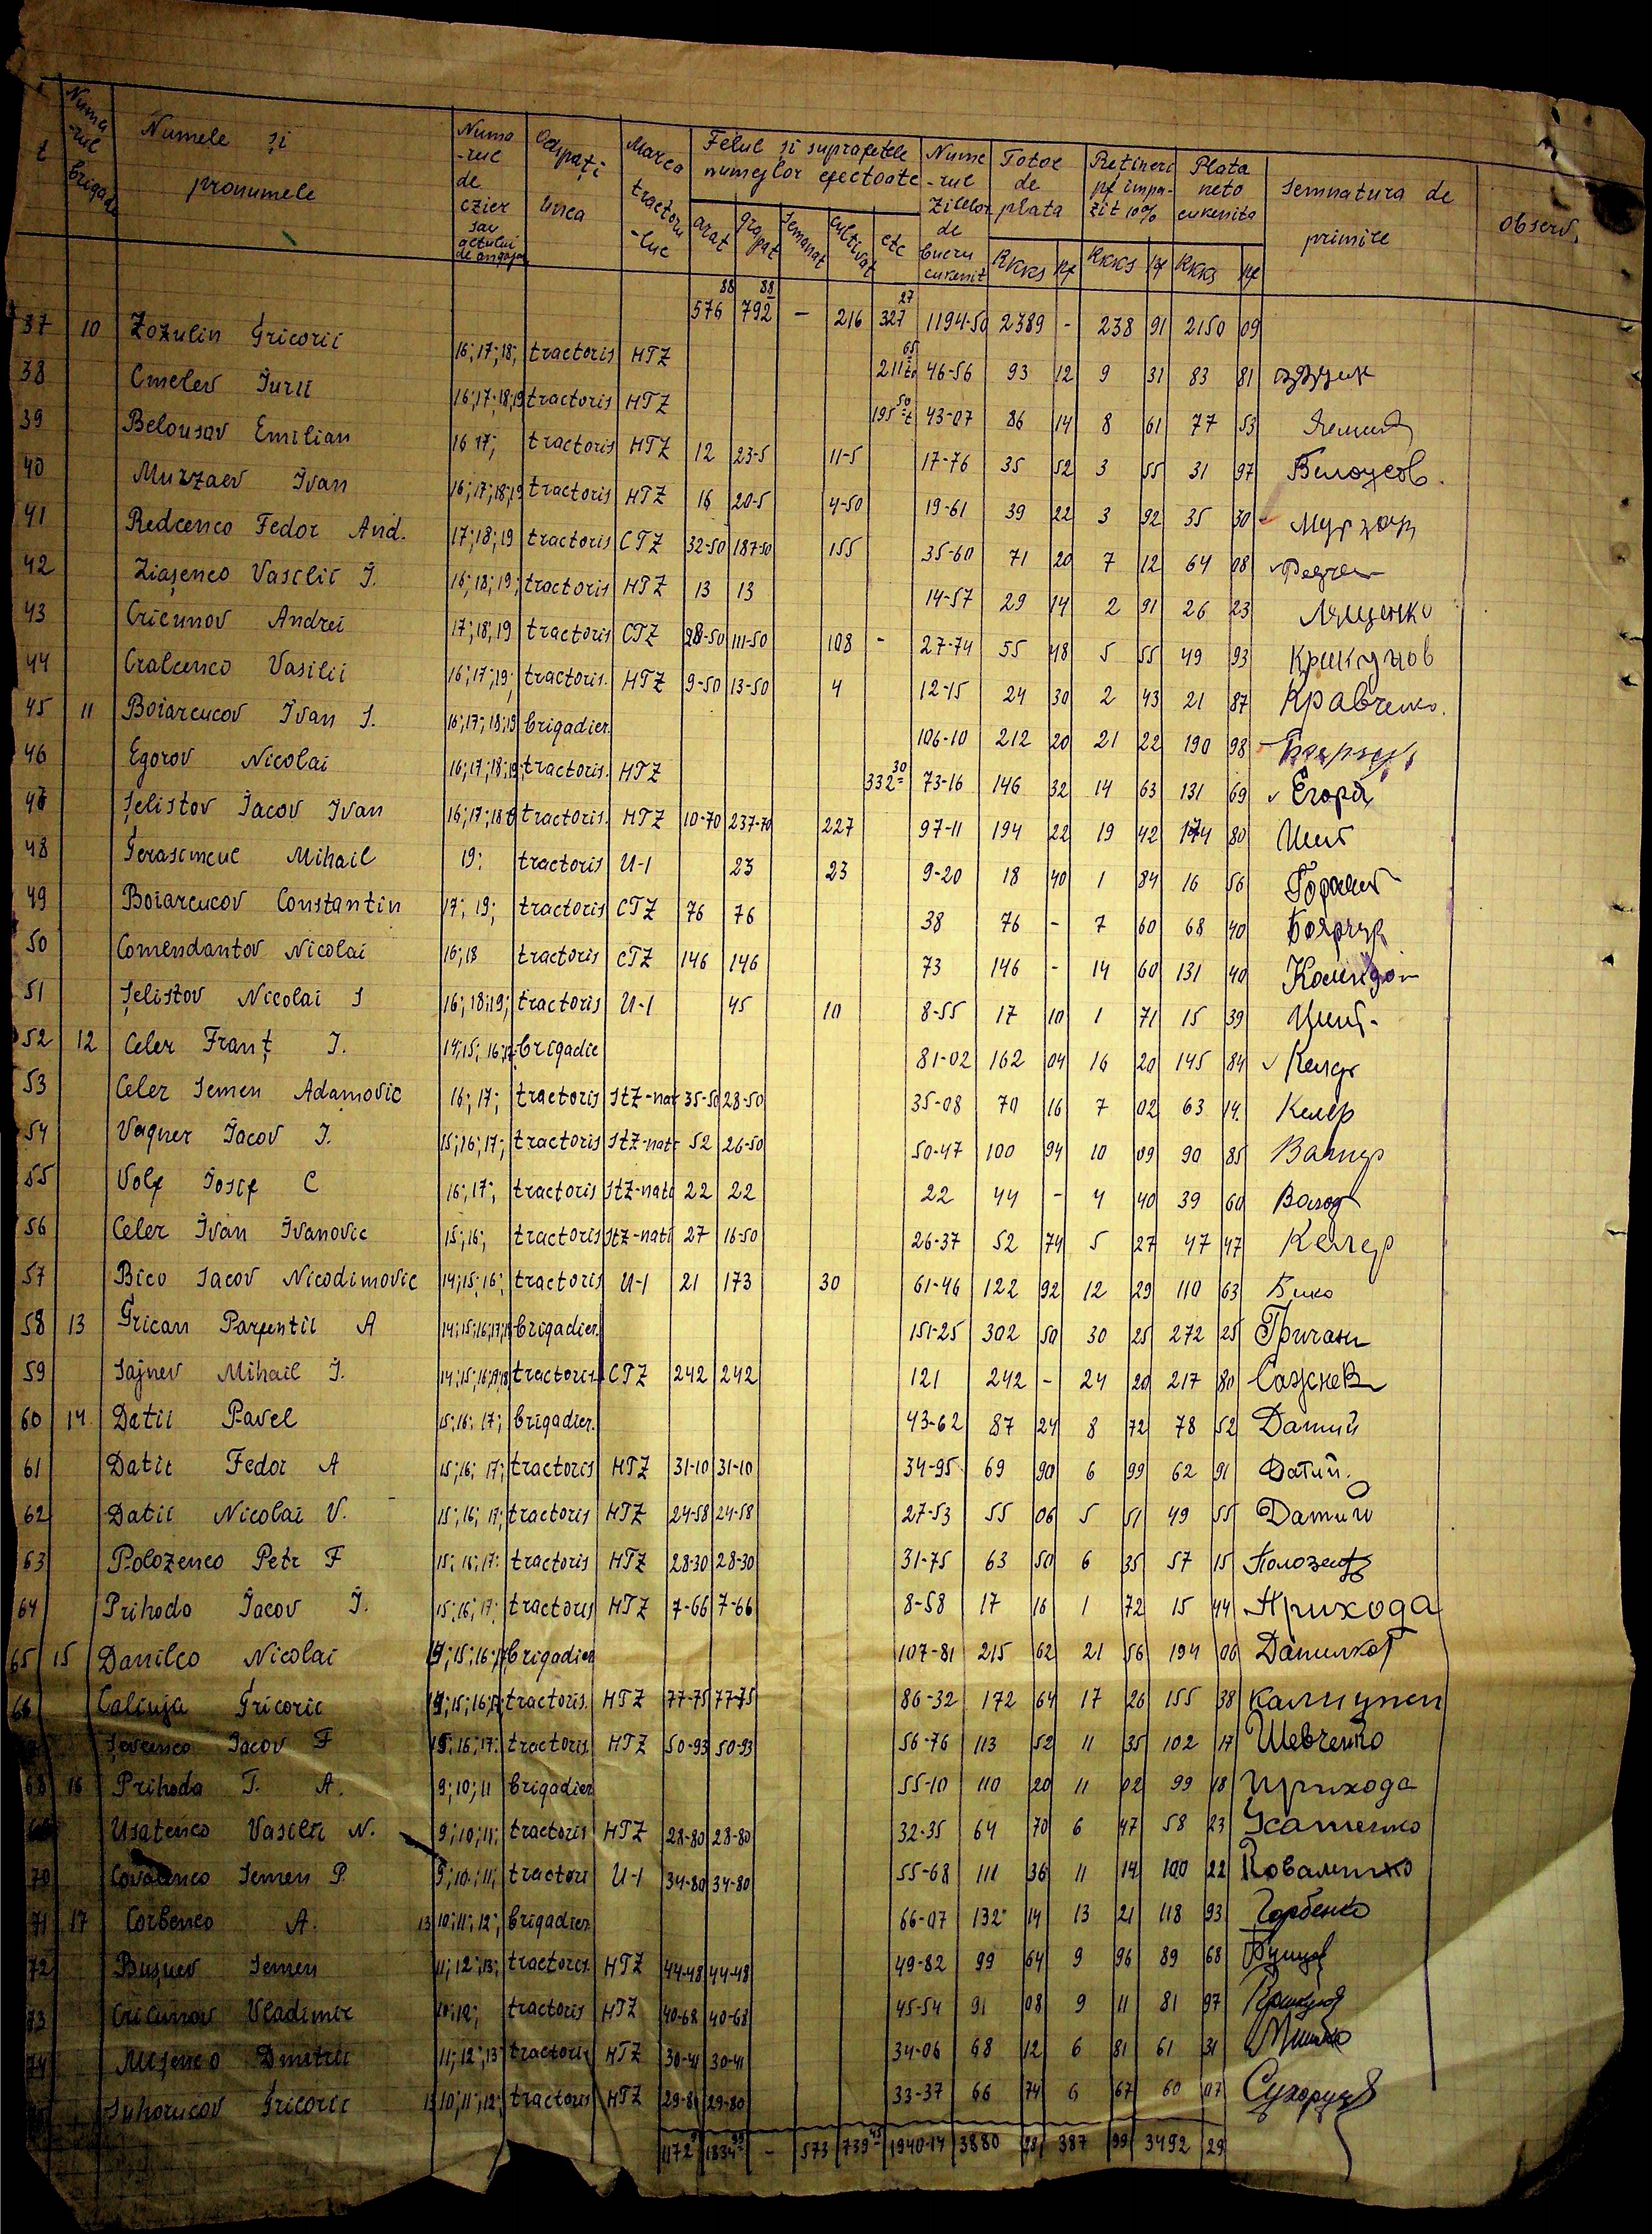 t Numa-rul brigade Numele și pronumele Numa-rul de czier sau actului de angajar Ocupați unea Marca tractoru-lui Felul și suprafetele numejlor efectoate Nume-rul zilelor de lucru cuvenit Totoe de plata Rețineri pf impo-zit 10% Plata neto cuvenita Semnatura de primire Observ.
arat grapat semanat cultivat etc RKKS Kf RKKS Kf RKKS Kf
576 88 792 88 — 216 327 27 1194-50 2389 - 238 91 2150 09
37 10 Zozulin Gricorii 16;17;18; tractoris HTZ 211 65 46-56 93 12 9 31 83 81
38 Cmelev Iurii 16;17;18;19 tractoris HTZ 195 50 43-07 86 14 8 61 77 53
39 Belousov Emilian 16 17; tractoris HTZ 12 23-5 11-5 17-76 35 52 3 55 31 97 Белоусов.
40 Murzaev Ivan 16;17;18;19 tractoris HTZ 16 20-5 4-50 19-61 39 22 3 92 35 30
41 Redcenco Fedor And. 17;18;19 tractoris CTZ 32-50 187-50 155 35-60 71 20 7 12 64 08
42 Ziașenco Vasilii I. 16;18;19; tractoris HTZ 13 13 14-57 29 14 2 91 26 23 Лященко
43 Cricunov Andrei 17;18;19 tractoris CTZ 28-50 111-50 108 - 27-74 55 48 5 55 49 93 Крикунов
44 Cralcenco Vasilii 16;17;19; tractoris. HTZ 9-50 13-50 4 12-15 24 30 2 43 21 87 Кравченко.
45 11 Boiarcucov Ivan S. 16;17;18;19 brigadier. 106-10 212 20 21 22 190 98
46 Egorov Nicolai 16;17;18;19; tractoris. HTZ 332 30 73-16 146 32 14 63 131 69 Егоров
47 Șelistov Iacov Ivan 16;17;18 tractoris. HTZ 10-70 237-70 227 97-11 194 22 19 42 174 80
48 Gerasimciuc Mihail 19; tractoris U-1 23 23 9-20 18 40 1 84 16 56
49 Boiarcucov Constantin 17; 19; tractoris CTZ 76 76 38 76 - 7 60 68 40 Боярчук
50 Comendantov Nicolai 16;18 tractoris CTZ 146 146 73 146 - 14 60 131 40
51 Șelistov Nicolai S 16;18;19; tractoris U-1 45 10 8-55 17 10 1 71 15 39
52 12 Celer Franț I. 14;15; 16;17 brigadie 81-02 162 04 16 20 145 84 Келер
53 Celer Semen Adamovic 16; 17; tractoris StZ-nat 35-50 28-50 35-08 70 16 7 02 63 14 Келер
54 Vagner Iacov I. 15;16;17; tractoris StZ-nati 52 26-50 50-47 100 94 10 09 90 85 Вагнер
55 Volf Iosif C 16;17; tractoris StZ-nati 22 22 22 44 - 4 40 39 60
56 Celer Ivan Ivanovic 15;16; tractoris StZ-nati 27 16-50 26-37 52 74 5 27 47 47 Келер
57 Bico Iacov Nicodimovic 14;15;16; tractoris U-1 21 173 30 61-46 122 92 12 29 110 63 Бико
58 13 Grican Parfentii A 14;15;16;17;1 brigadier. 151-25 302 50 30 25 272 25 Гричан
59 Sajnev Mihail I. 14;15;16;17;18 tractoris. CTZ 242 242 121 242 - 24 20 217 80 Сажнев
60 14 Datii Pavel 15;16; 17; brigadier. 43-62 87 24 8 72 78 52 Датий
61 Datii Fedor A 15;16; 17; tractoris HTZ 31-10 31-10 34-95 69 90 6 99 62 91 Датий.
62 Datii Nicolai V. 15; 16; 17; tractoris HTZ 24-58 24-58 27-53 55 06 5 51 49 55 Датий
63 Polozenco Petr F 15; 16;17; tractoris HTZ 28-30 28-30 31-75 63 50 6 35 57 15
64 Prihodo Iacov I. 15;16;17; tractoris HTZ 7-66 7-66 8-58 17 16 1 72 15 44 Прихода
65 15 Danilco Nicolai 14;15;16;17 brigadier 107-81 215 62 21 56 194 06
66 Caliuja Gricorie 14;15;16;17 tractoris. HTZ 77-75 77-75 86-32 172 64 17 26 155 38
Șevcenco Iacov F 15;16;17; tractoris. HTZ 50-93 50-93 56-76 113 52 11 35 102 17 Шевченко
68 16 Prihoda T. A. 9;10;11 brigadier 55-10 110 20 11 02 99 18 Прихода
Usatenco Vasilii N. 9;10;11; tractoris HTZ 28-80 28-80 32-35 64 70 6 47 58 23 Усатенко
70 Covalenco Semen P. 9;10;11; tractori U-1 34-80 34-80 55-68 111 36 11 14 100 22 Коваленко
71 17 Corbenco A. 13 10;11;12; brigadier. 66-07 132 14 13 21 118 93 Горбенко
72 Bușuev Semen 11;12;13; tractoris. HTZ 44-48 44-48 49-82 99 64 9 96 89 68
73 Cricunov Vladimir 10;12; tractoris HTZ 40-68 40-68 45-54 91 08 9 11 81 97
74 Mișenco Dmitrii 11;12;13 tractoris HTZ 30-41 30-41 34-06 68 12 6 81 61 31
Suhorucov Gricorii 13 10;11;12; tractoris HTZ 29-80 29-80 33-37 66 74 6 67 60 07
1172 1834 — 573 739 45 1940-14 3880 28 387 99 3492 29